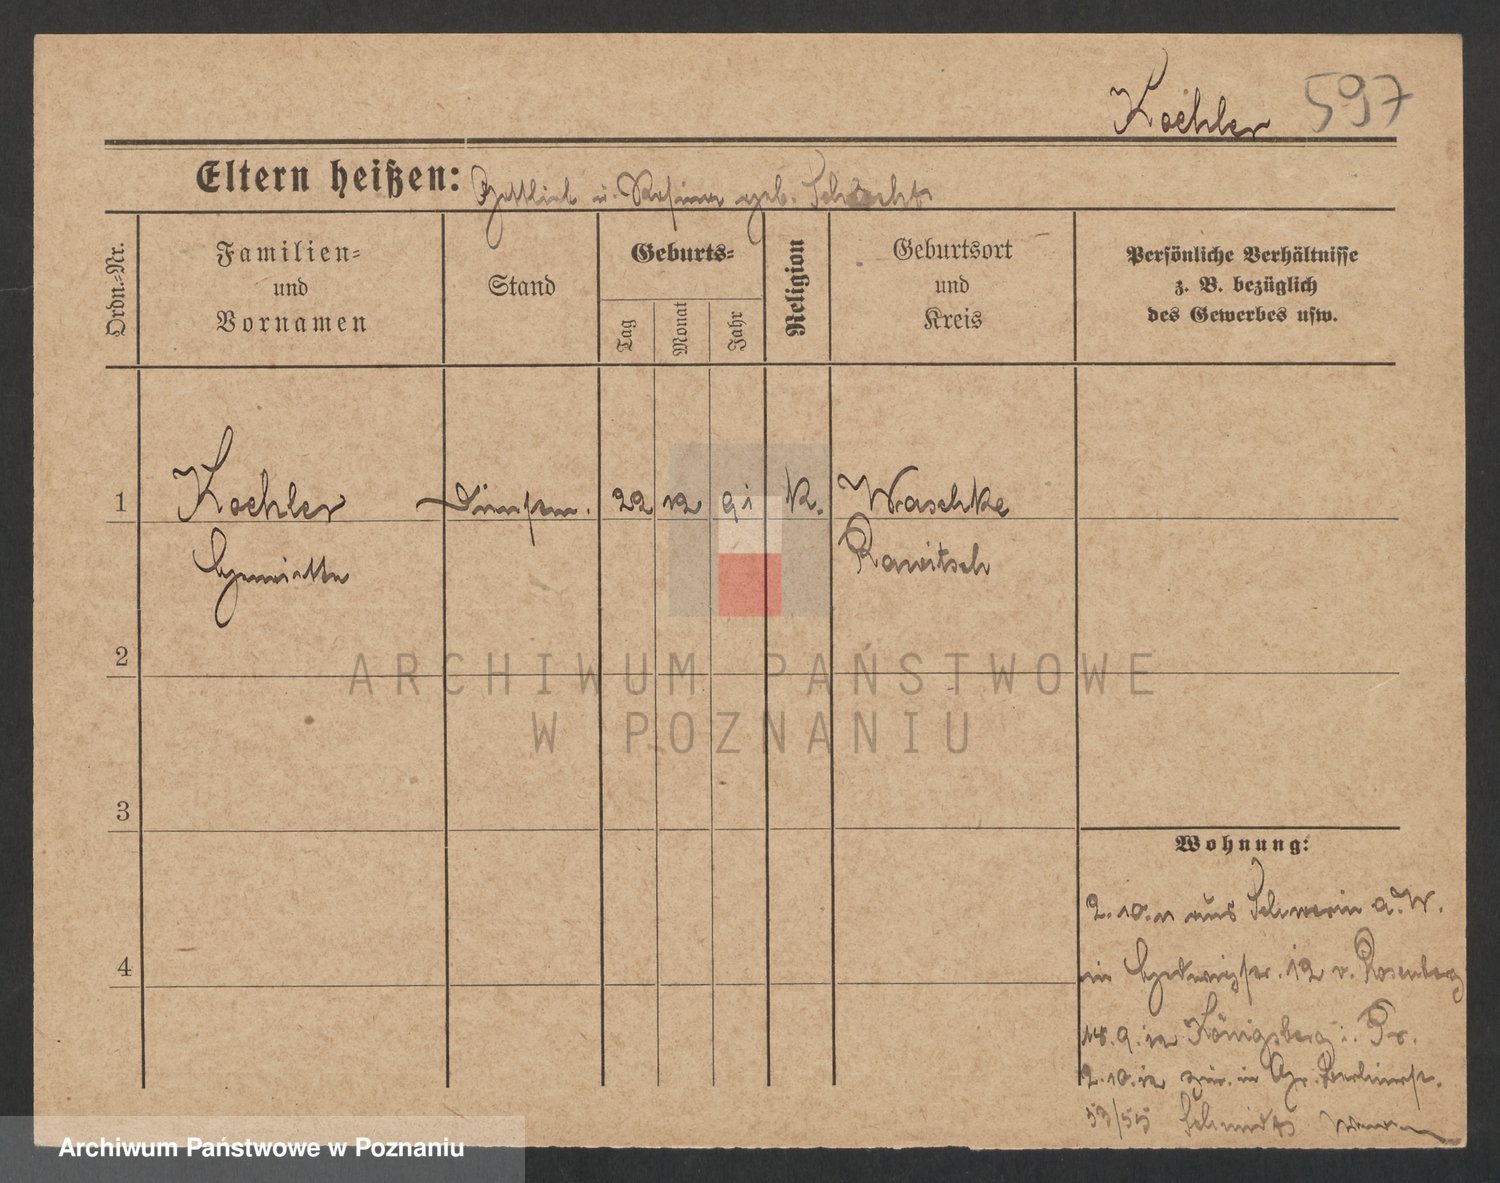 Koehler 597
Eltern heißen: Gottlieb u. Rosina geb.
Ordn.=Nr.
Familien=
und
Vornamen
Stand
Geburts=
Tag
Monat
Jahr
Religion
Geburtsort
und
Kreis
Persönliche Verhältnisse
z. B. bezüglich
des Gewerbes usw.
1 Koehler 22 12 91 K. Waschke
Rawitsch
2
3
4
Wohnung:
2.10.11 aus Schwerin a. W.
in Hedwigstr. 12 v. Rosenberg
18.9.12 Königsberg i. Pr.
2.10.12 zur. in Gr. Berlinerst.
53/55 Schmidt
ARCHIWUM PAŃSTWOWE
W POZNANIU
Archiwum Państwowe w Poznaniu